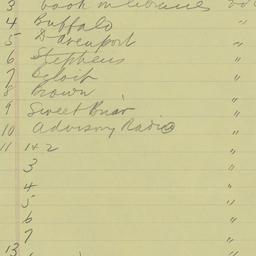 3 book on libraries
4 Buffalo "
5 Davenport "
6 Stephens "
7 Beloit "
8 Brown "
9 Sweet Briar "
10 Advisory Radio "
11 1+2 "
3 "
4 "
5 "
6 "
7 "
13